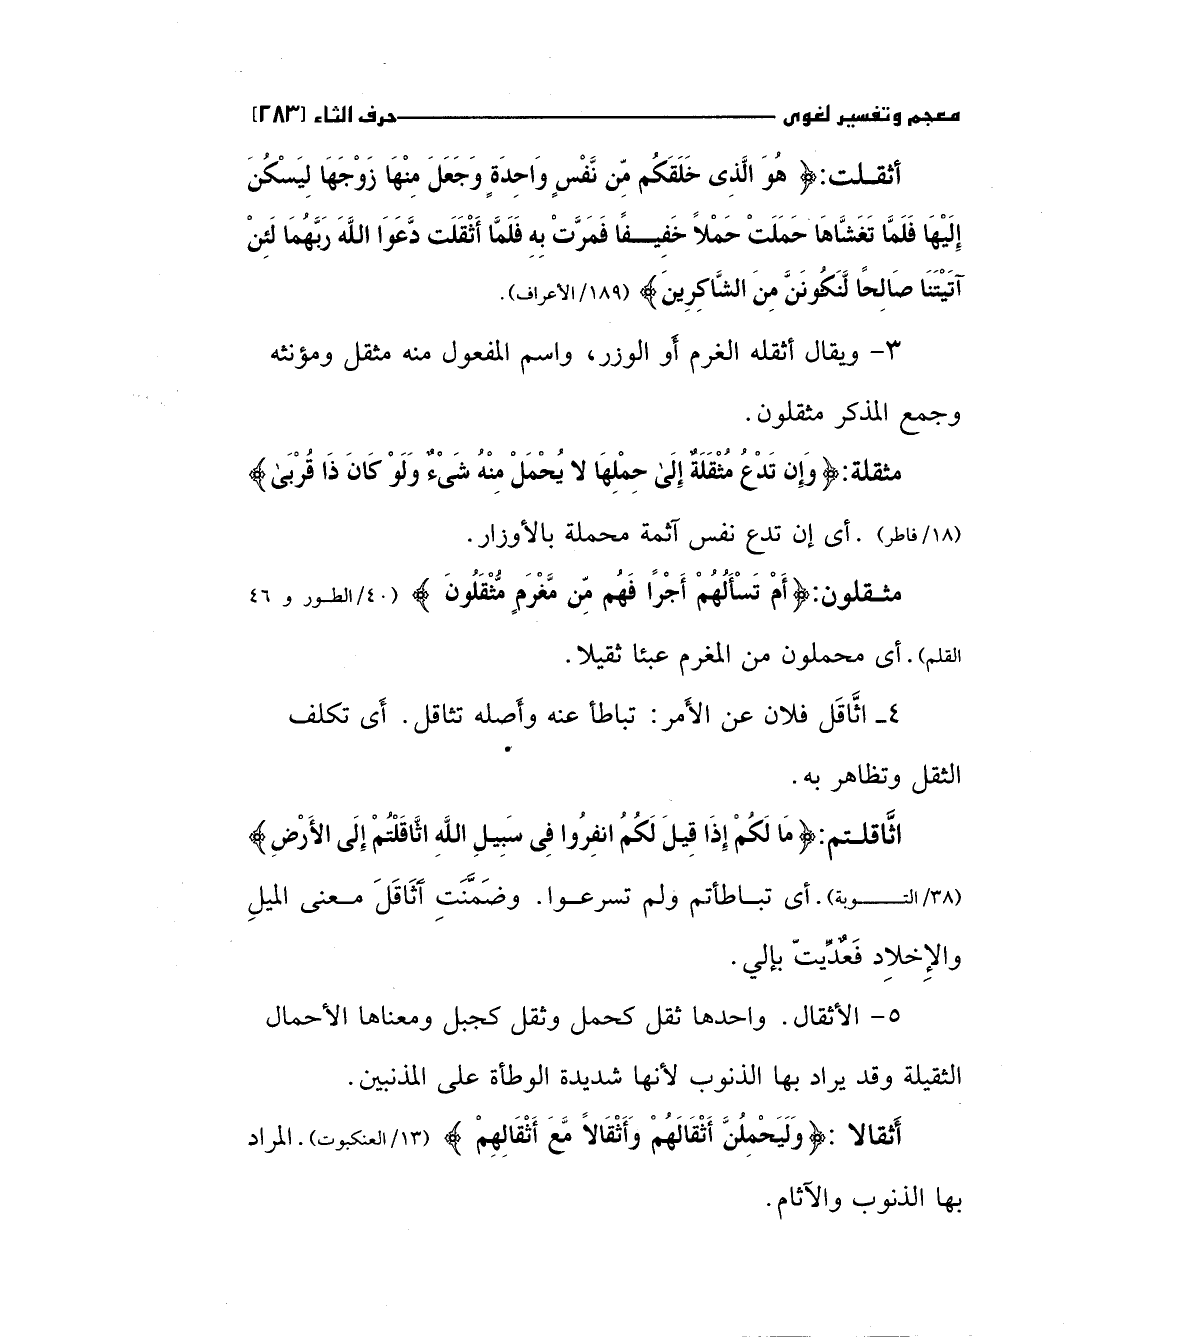 معجم وتفسير لغوى حرف الثاء [٢٨٣]
أثقـلت:﴿ هُوَ الَّذِى خَلَقَكُم مِّن نَّفْسٍ وَاحِدَةٍ وَجَعَلَ مِنْهَا زَوْجَهَا لِيَسْكُنَ
إِلَيْهَا فَلَمَّا تَغَشَّاهَا حَمَلَتْ حَمْلاً خَفِيـــفًا فَمَرَّتْ بِهِ فَلَمَّا أَثْقَلَت دَّعَوَا اللَّهَ رَبَّهُمَا لَئِنْ
آتَيْتَنَا صَالِحًا لَّنَكُونَنَّ مِنَ الشَّاكِرِينَ﴾ (١٨٩/الأعراف).
٣- ويقال أثقله الغرم أو الوزر، واسم المفعول منه مثقل ومؤنثه
وجمع المذكر مثقلون.
مثقلة:﴿ وَإِن تَدْعُ مُثْقَلَةٌ إِلَىٰ حِمْلِهَا لا يُحْمَلْ مِنْهُ شَىْءٌ وَلَوْ كَانَ ذَا قُرْبَىٰ﴾
(١٨/فاطر) .أى إن تدع نفس آثمة محملة بالأوزار.
مثـقلون:﴿أَمْ تَسْأَلُهُمْ أَجْرًا فَهُم مِّن مَّغْرَمٍ مُّثْقَلُونَ ﴾ (٤٠/الطـور و ٤٦
القلم).أى محملون من المغرم عبئا ثقيلا.
٤ـ اثَّاقَل فلان عن الأمر: تباطأ عنه وأصله تثاقل. أى تكلف
الثقل وتظاهر به.
اثَّاقلـتم:﴿ مَا لَكُمْ إِذَا قِيلَ لَكُمُ انفِرُوا فِى سَبِيلِ اللَّهِ اثَّاقَلْتُمْ إِلَى الأَرْضِ﴾
(٣٨/التـــــوبة).أى تبـاطأتم ولم تسرعـوا. وضَمَّنَتِ آثَاقَلَ مـعنى الميلِ
والإِخلادِ فَعُدِّيتْ بإلي.
٥- الأثقال. واحدها ثقل كحمل وثقل كجبل ومعناها الأحمال
الثقيلة وقد يراد بها الذنوب لأنها شديدة الوطأة على المذنبين.
أثقالا :﴿ وَلَيَحْمِلُنَّ أَثْقَالَهُمْ وَأَثْقَالاً مَّعَ أَثْقَالِهِمْ ﴾ (١٣/العنكبوت).المراد
بها الذنوب والآثام.